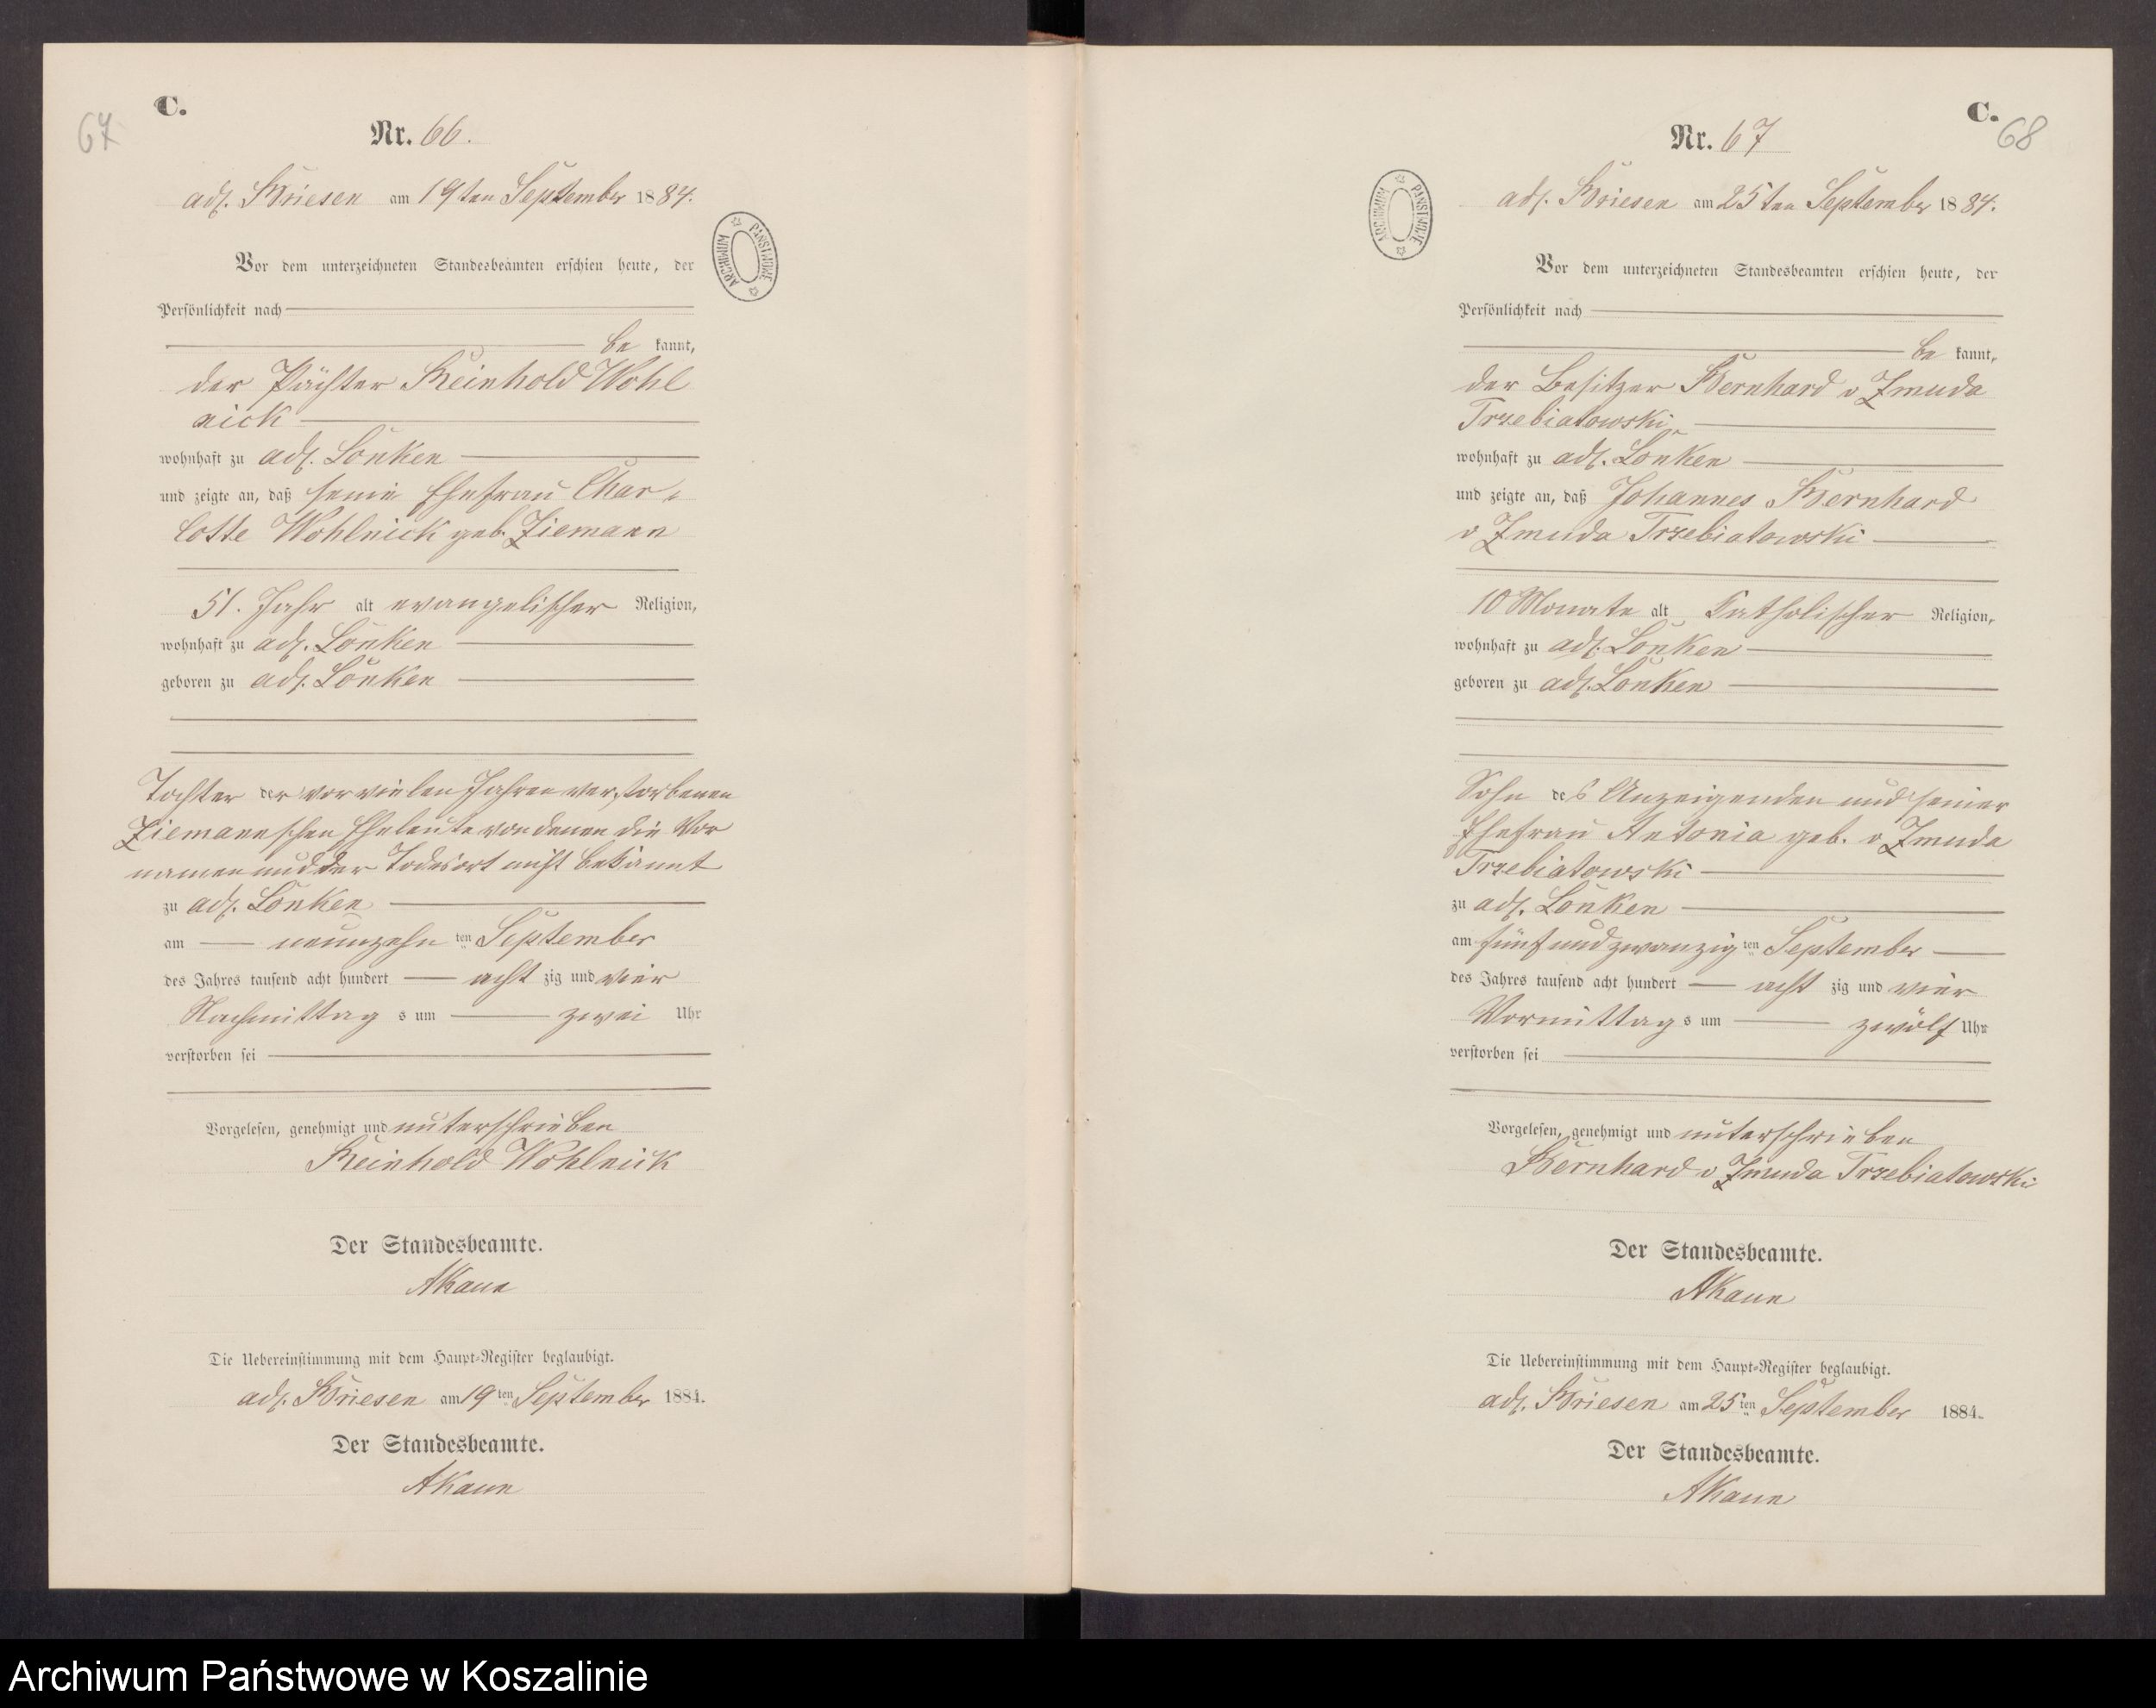 C.
67
Nr. 66.
adl. Briesen am 19ten September 1884.
ARCHIWUM PAŃSTWOWE
Vor dem unterzeichneten Standesbeamten erschien heute, der
Persönlichkeit nach
be kannt,
der Pächter Reinhold Wohl
nick
wohnhaft zu adl. Lonken
und zeigte an, daß seine Ehefrau Char-
lotte Wohlnick geb. Ziemann
51. Jahr alt evangelischer Religion,
wohnhaft zu adl. Lonken
geboren zu adl. Lonken
Tochter der vor vielen Jahren verstorbenen
Ziemannschen Eheleute von denen die Vor
namen und der Todesort nicht bekannt
zu adl. Lonken
am neunzehn ten September
des Jahres tausend acht hundert acht zig und vier
Nachmittag s um zwei Uhr
verstorben sei
Vorgelesen, genehmigt und unterschrieben
Reinhold Wohlnick
Der Standesbeamte.
AKaun
Die Uebereinstimmung mit dem Haupt-Register beglaubigt.
adl. Briesen am 19 ten September 1884.
Der Standesbeamte.
AKaun
C.
68
Nr. 67
adl. Briesen am 25ten September 1884.
ARCHIWUM PAŃSTWOWE
Vor dem unterzeichneten Standesbeamten erschien heute, der
Persönlichkeit nach
be kannt,
der Besitzer Bernhard v Zmuda
Trzebiatowski
wohnhaft zu adl. Lonken
und zeigte an, daß Johannes Bernhard
v Zmuda Trzebiatowski
10 Monate alt katholischer Religion,
wohnhaft zu adl. Lonken
geboren zu adl. Lonken
Sohn des Anzeigenden und seiner
Ehefrau Antonia geb. v Zmuda
Trzebiatowski
zu adl. Lonken
am fünfundzwanzig ten September
des Jahres tausend acht hundert acht zig und vier
Vormittag s um zwölf Uhr
verstorben sei
Vorgelesen, genehmigt und unterschrieben
Bernhard v Zmuda Trzebiatowski
Der Standesbeamte.
AKaun
Die Uebereinstimmung mit dem Haupt-Register beglaubigt.
adl. Briesen am 25 ten September 1884.
Der Standesbeamte.
AKaun
Archiwum Państwowe w Koszalinie